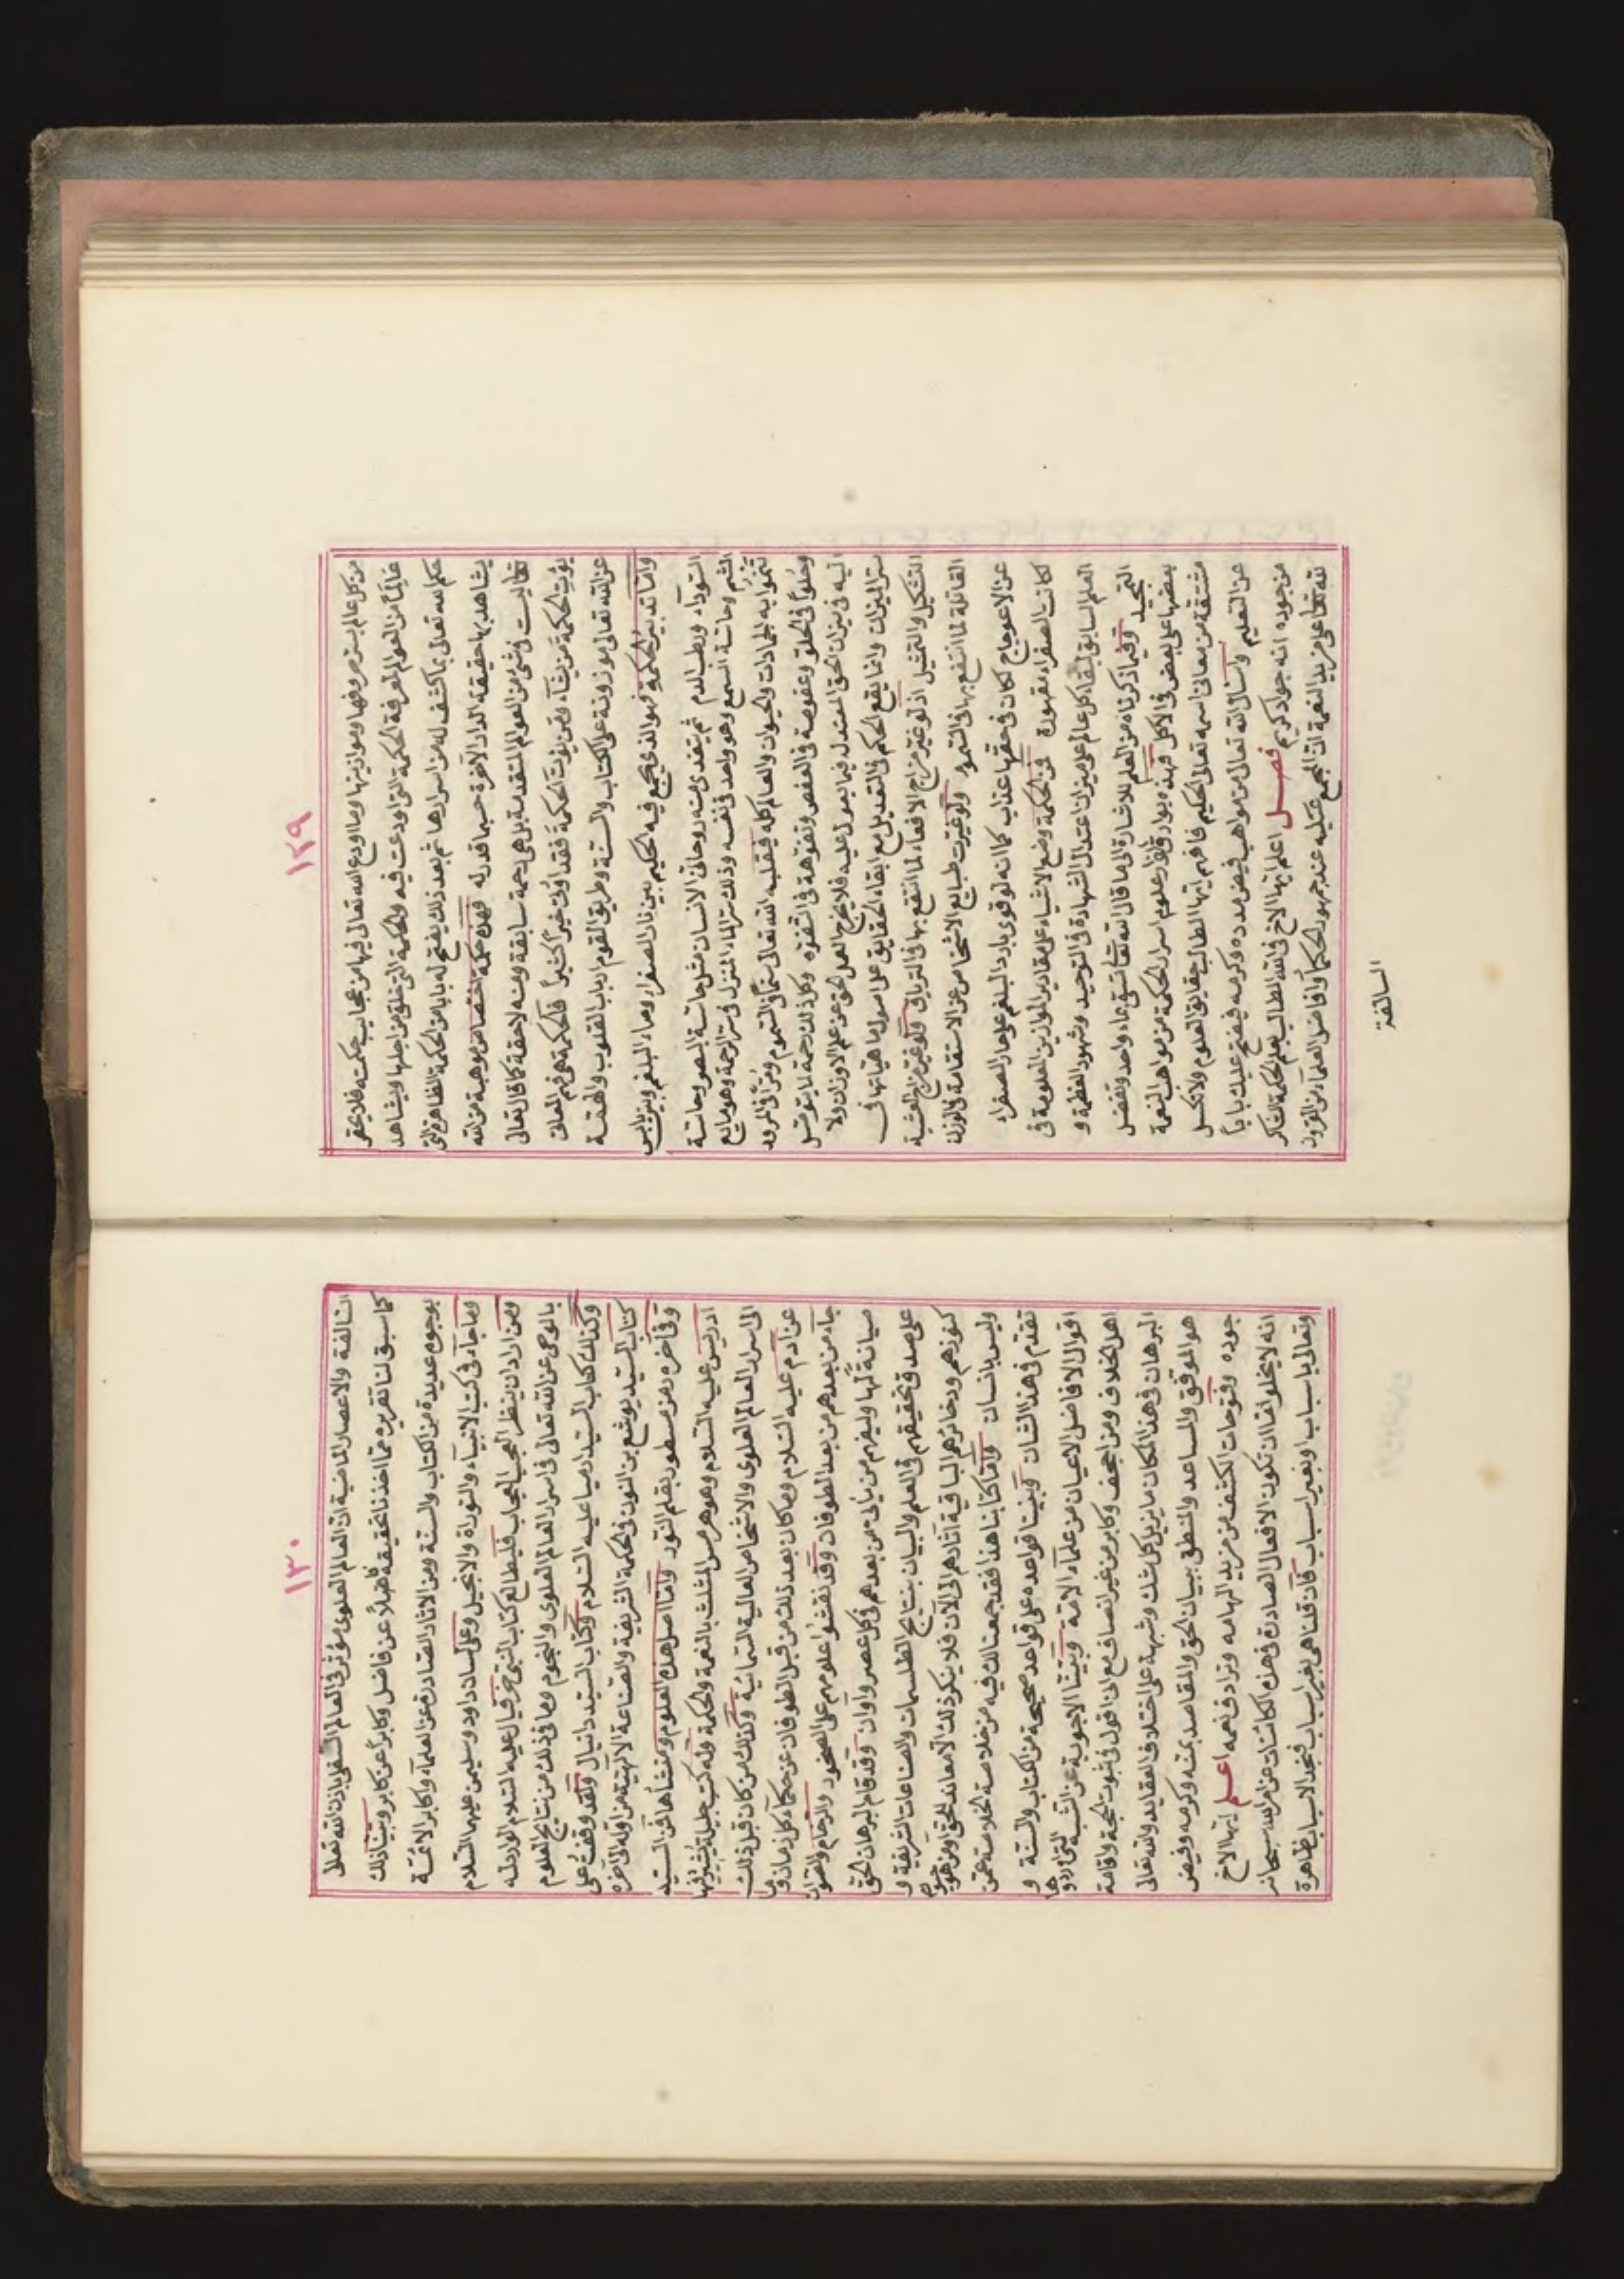 ١٢٩
من كل عالم بسر حروفها وموازينها وما اودع الله تعالى فيها من عجايب حكمته فلا يحقر
علماً من العلوم المعرفة الحكمة التي اودعت فيه والحكمة التي خلق من اجلها ويشاهد
حكم الله تعالى بما كشف له من اسرارها ثم بعد ذلك يفتح له بابا من الحكمة الظاهرة التي
يشاهد بها حقيقة الدار الآخرة حسبما قدر له فهذه حكمة اختصاص موهبة من الله
تعالى ليست في شئ من العلوم المتقدمة بل هي رحمة سابقة ومنه لاحقة كما قال تعالى
يؤت الحكمة من يشآء ومن يؤت الحكمة فقد اوتى خيراً كثيراً فالحكمة هي فهم المعانى
عن الله تعالى موزونة على الكتاب والسنة وطريق القوم ارباب القلوب والهمة
واما تدبير الحكمة فهو الذي يجمع فيه الحكيم بين نار الصفراء وماء البلغم وبين يابس
السوداء ورطب الدم ثم يتغذى منه روحانى الانسان مثل حاسة البصر وحاسة
الشم وحاسة السمع وهو واحد فى نفسه وذلك سر الماء المنزل فى سر الرحمة وهو مايع
تنموا به الجمادات والحيوان والعالم كله فيقلبه الله تعالى سماً فى السموم ومراً فى المرور
وحلواً فى الحلو وعفوصة فى العفص وتفوهة فى التفوه وكل ذلك رحمة لما يتوصل
اليه فى ميزان الحق المعتدل فيما يعول عليه فلا يخرج العمل الحق عن علم الاوزان ولا
سر الميزان وانما يقع الحكم فى التعديل مع ابقاء الحقايق على اصول ماهياتها فى
التشكيل والتمثيل اذ لو غير مزاج الافعاء لما انتفع بها فى الترياق ولو غير مزج العشبة
القاتلة لما انتفع بها فى السموم ولو غيرت طبايع الاشخاص عن الاستقامة فى الوزن
عن الاعوجاج لكان فى حقها عذاب كما انه لو قوى بارد البلغم على حار الصفراء
لكانت الصفراء مقهورة فمن الحكمة وضع الاشياء على مقادير الموازين المعلومة فى
العلم السابق لبقاء كل عالم على ميزان اعتدال الشهادة فى التوحيد وشهود العظمة و
التمجيد وفيما ذكرناه من العلم للاشارة الى ما قال الله تعالى تسقى بماء واحد ونفضل
بعضها على بعض فى الاكل فهذه بوارق انوار علوم اسرار الحكمة من مواهب النعمة
مشتقة من معانى اسمه تعالى الحكيم فافهم ايها الطالب حقايق العلوم ولا تكسل
عن التعليم واسأل الله تعالى من مواهب فيض مدده وكرمه فيفتح عليك باباً
من جوده انه جواد كريم فصل اعلم ايها الاخ فى الله الطالب لعلم الحكمة الشاكر
لله تعالى على مزيد النعمة ان المجمع عليه عند جمهور الحكمآ وافاضل العلمآء من القرون
السالفة
١٣٠
السالفة والاعصار الماضية ان العالم العلوى مؤثر فى العالم السفلى باذن الله تعالى
كما سبق لنا تقريره مما اخذنا تحقيقه نقلاً عن فاضل وكابراً عن كابر وبينا ذلك
بوجوه عديدة من الكتاب والسنة ومن الاثار الصادرة عن العلمآء واكابر الائمة
وما جآء فى كتب الانبيآء والتوراة والانجيل وعلى لسان داود وسليمن عليهما السلام
ومن اراد ان ينظر العجب العجاب فليطالع كتاب النبى حزقيال عليه السلام الوارد له
بالوحى عن الله تعالى فى اسرار العالم العلوى والنجوم وما فى ذلك من نتايج العلوم
وكذلك كتاب السيد ارميا عليه السلام وكتاب السيد دانيال ولقد وقفت على
كتاب السيد يوشع بن النون فى الحكمة الشريفة والصناعة الالهية من اوله الى اخره
وفى اخره رمز مسطور بقلم النور واما اصل هذه العلوم ومنشأها فمن السيد
ادريس عليه السلام وهو هرمس المثلث بالنعمة والحكمة وله كتب جليلة يشير فيها
الى اسرار العالم العلوى والاشخاص العالية السمائية وكذلك من كان قبل ذلك
عن ادم عليه السلام وما كان بعد ذلك من قبل الطوفان عن حكمآء كل زمان وما
جآء من بعدهم من بعد الطوفان وقد نقشوا علومهم على الصخور والرخام والصوان
صيانة لها وليفهم من يأتى من بعدهم فى كل عصر واوان وقد قام البرهان الحق
على صدق تحقيقهم فى العلم والبيان بنتايج الطلسمات والصناعات الشريفة و
كنوزهم وذخائرهم الباقية اثارهم الى الآن فلا ينكر ذلك الا معاند للحق ومن هو جهول
وليس بانسان واما كتابنا هذا فقد جمعنا لك فيه من خلاصة الخلاصة عمن
تقدم فى هذا الشان وبنينا قواعده على قواعد صحيحة من الكتاب والسنة و
اقوال الافاضل الاعيان من علمآء الامة وبينا الاجوبة عن الشبه التى اوردوها
اهل الخلاف ومن اجحف وكابر من غير انصاف مع انى اقول فى ثبوت الحجة واقامة
البرهان فى هذا المكان ما يزيل كل شك وشبهة على اختلاف العقايد والله تعالى
هو الموفق والمساعد والمنطق ببيان الحق والمقاصد بمنه وكرمه وفيض
جوده وفتوحات الكشف من مزيد الهامه وترادف نعمه اعلم ايها الاخ
انه لا يخلو اما ان تكون الافعال الصادرة فى هذه الكائنات عن امر الله سبحانه
وتعالى باسباب او بغير اسباب فان قلنا هى بغير اسباب فنجد الاسباب ظاهرة